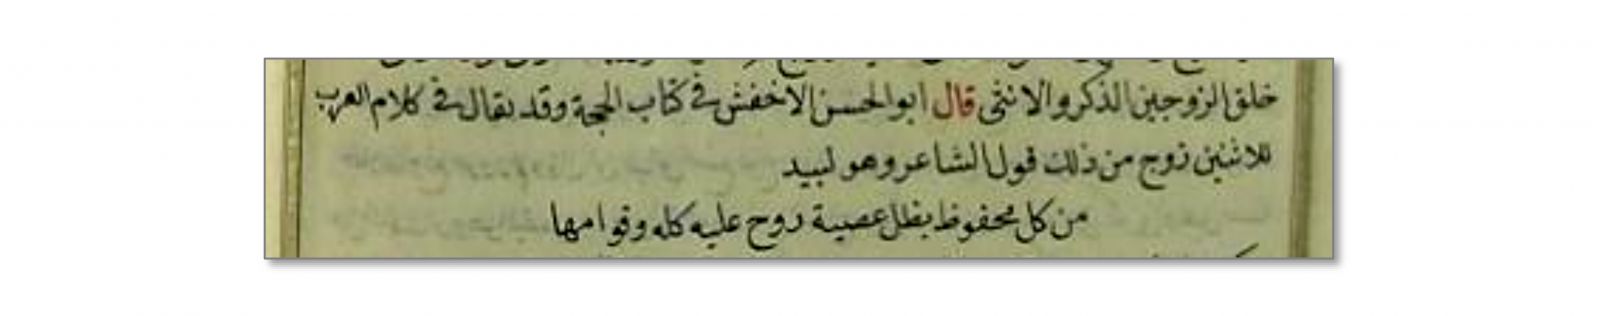 خلق الزوجين الذكر والانثى قال ابوالحسن الاخفش فى كتاب الحجة وقد يقال فى كلام العرب
للاثنين زوج من ذلك قول الشاعر وهو لبيد
من كل محفوظ يظل عصية روح عليه كله وقوامها